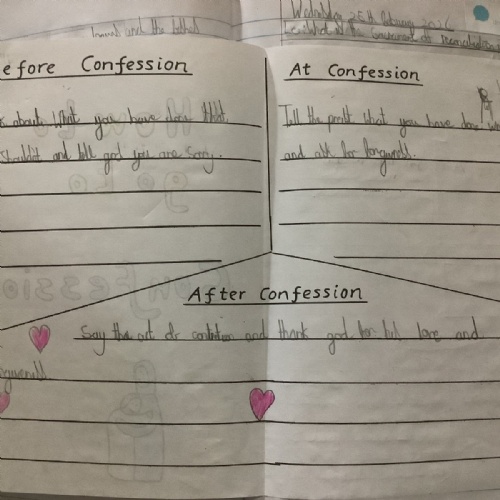 Wednesday 25th February 2026
and the
at the Sacrament of Reconciliation
efore Confession
about what you have done that
Shouldnt and tell god you are sorry.
At Confession
Tell the preist that you have done
and ask for
After Confession
Say the act of contrition and thank god for his love and